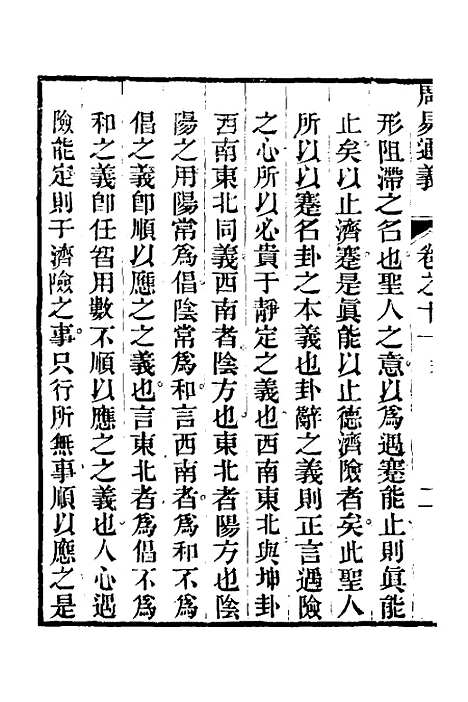 周易通義　卷之十一　二
形阻滯之名也聖人之意以爲遇蹇能止則眞能
止矣以止濟蹇是眞能以止德濟險者矣此聖人
所以以蹇名卦之本義也卦辭之義則正言遇險
之心所以必貴于靜定之義也西南東北與坤卦
西南東北同義西南者陰方也東北者陽方也陰
陽之用陽常爲倡陰常爲和言西南者爲和不爲
倡之義卽順以應之之義也言東北者爲倡不爲
和之義卽任智用數不順以應之之義也人心遇
險能定則于濟險之事只行所無事順以應之是